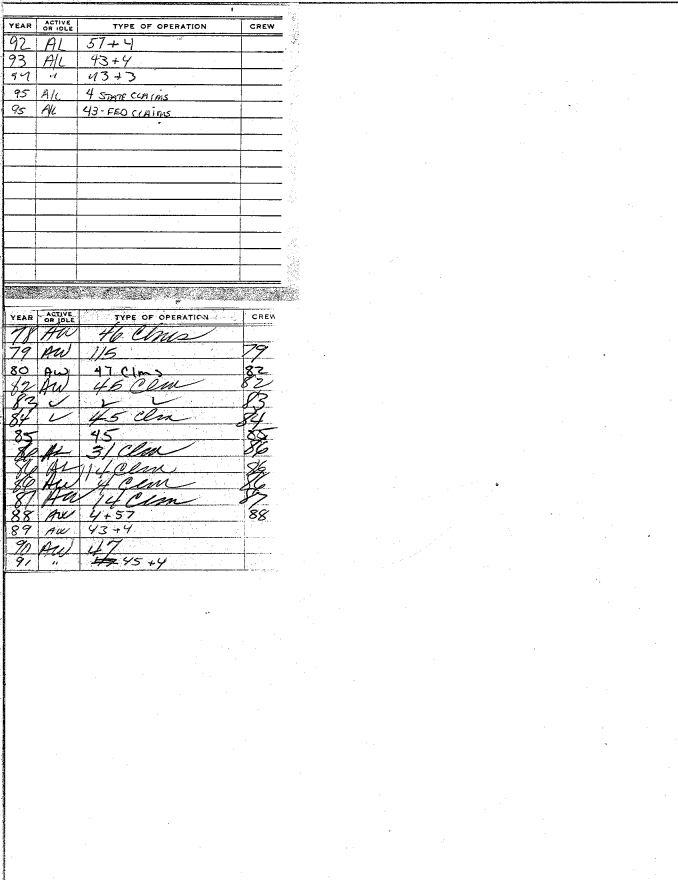 YEAR ACTIVE OR IDLE TYPE OF OPERATION CREW
92 AL 57+4
93 A/L 43+4
94 " 43+3
95 A/L 4 STATE CLAIMS
95 A/L 43-FED CLAIMS
YEAR ACTIVE OR IDLE TYPE OF OPERATION CREW
78 AW 46 Clms
79 AW 115 79
80 AW 47 Clms 82
82 AW 46 Clm 82
83 ✓ ✓ ✓ 83
84 ✓ 45 Clm 84
85 45 85
86 AL 31 Clm 86
86 AL 114 Clm 86
86 AW 4 Clm 86
87 AW 14 Clm 87
88 AW 4+57 88
89 AW 43+4
90 AW 47
91 " 45+4